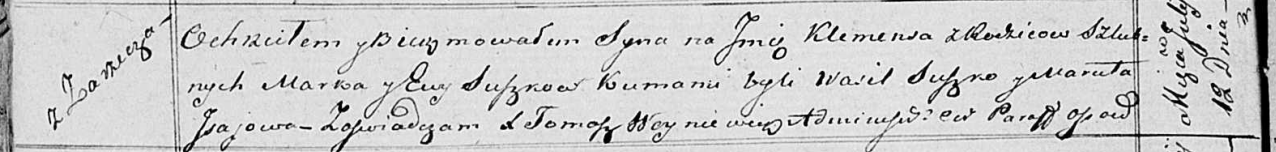 z Zarzecza
Ochrzciłem y Bierzmowałem Syna na Jmię Klemensa z Rodzicow Szlub=
nych Marka y Ewy Suszkow Kumami byli Wasil Suszko y Maruta
Isajowa - Zaświadczam X Tomasz Woyniewicz
w Msca July
12 Dnia